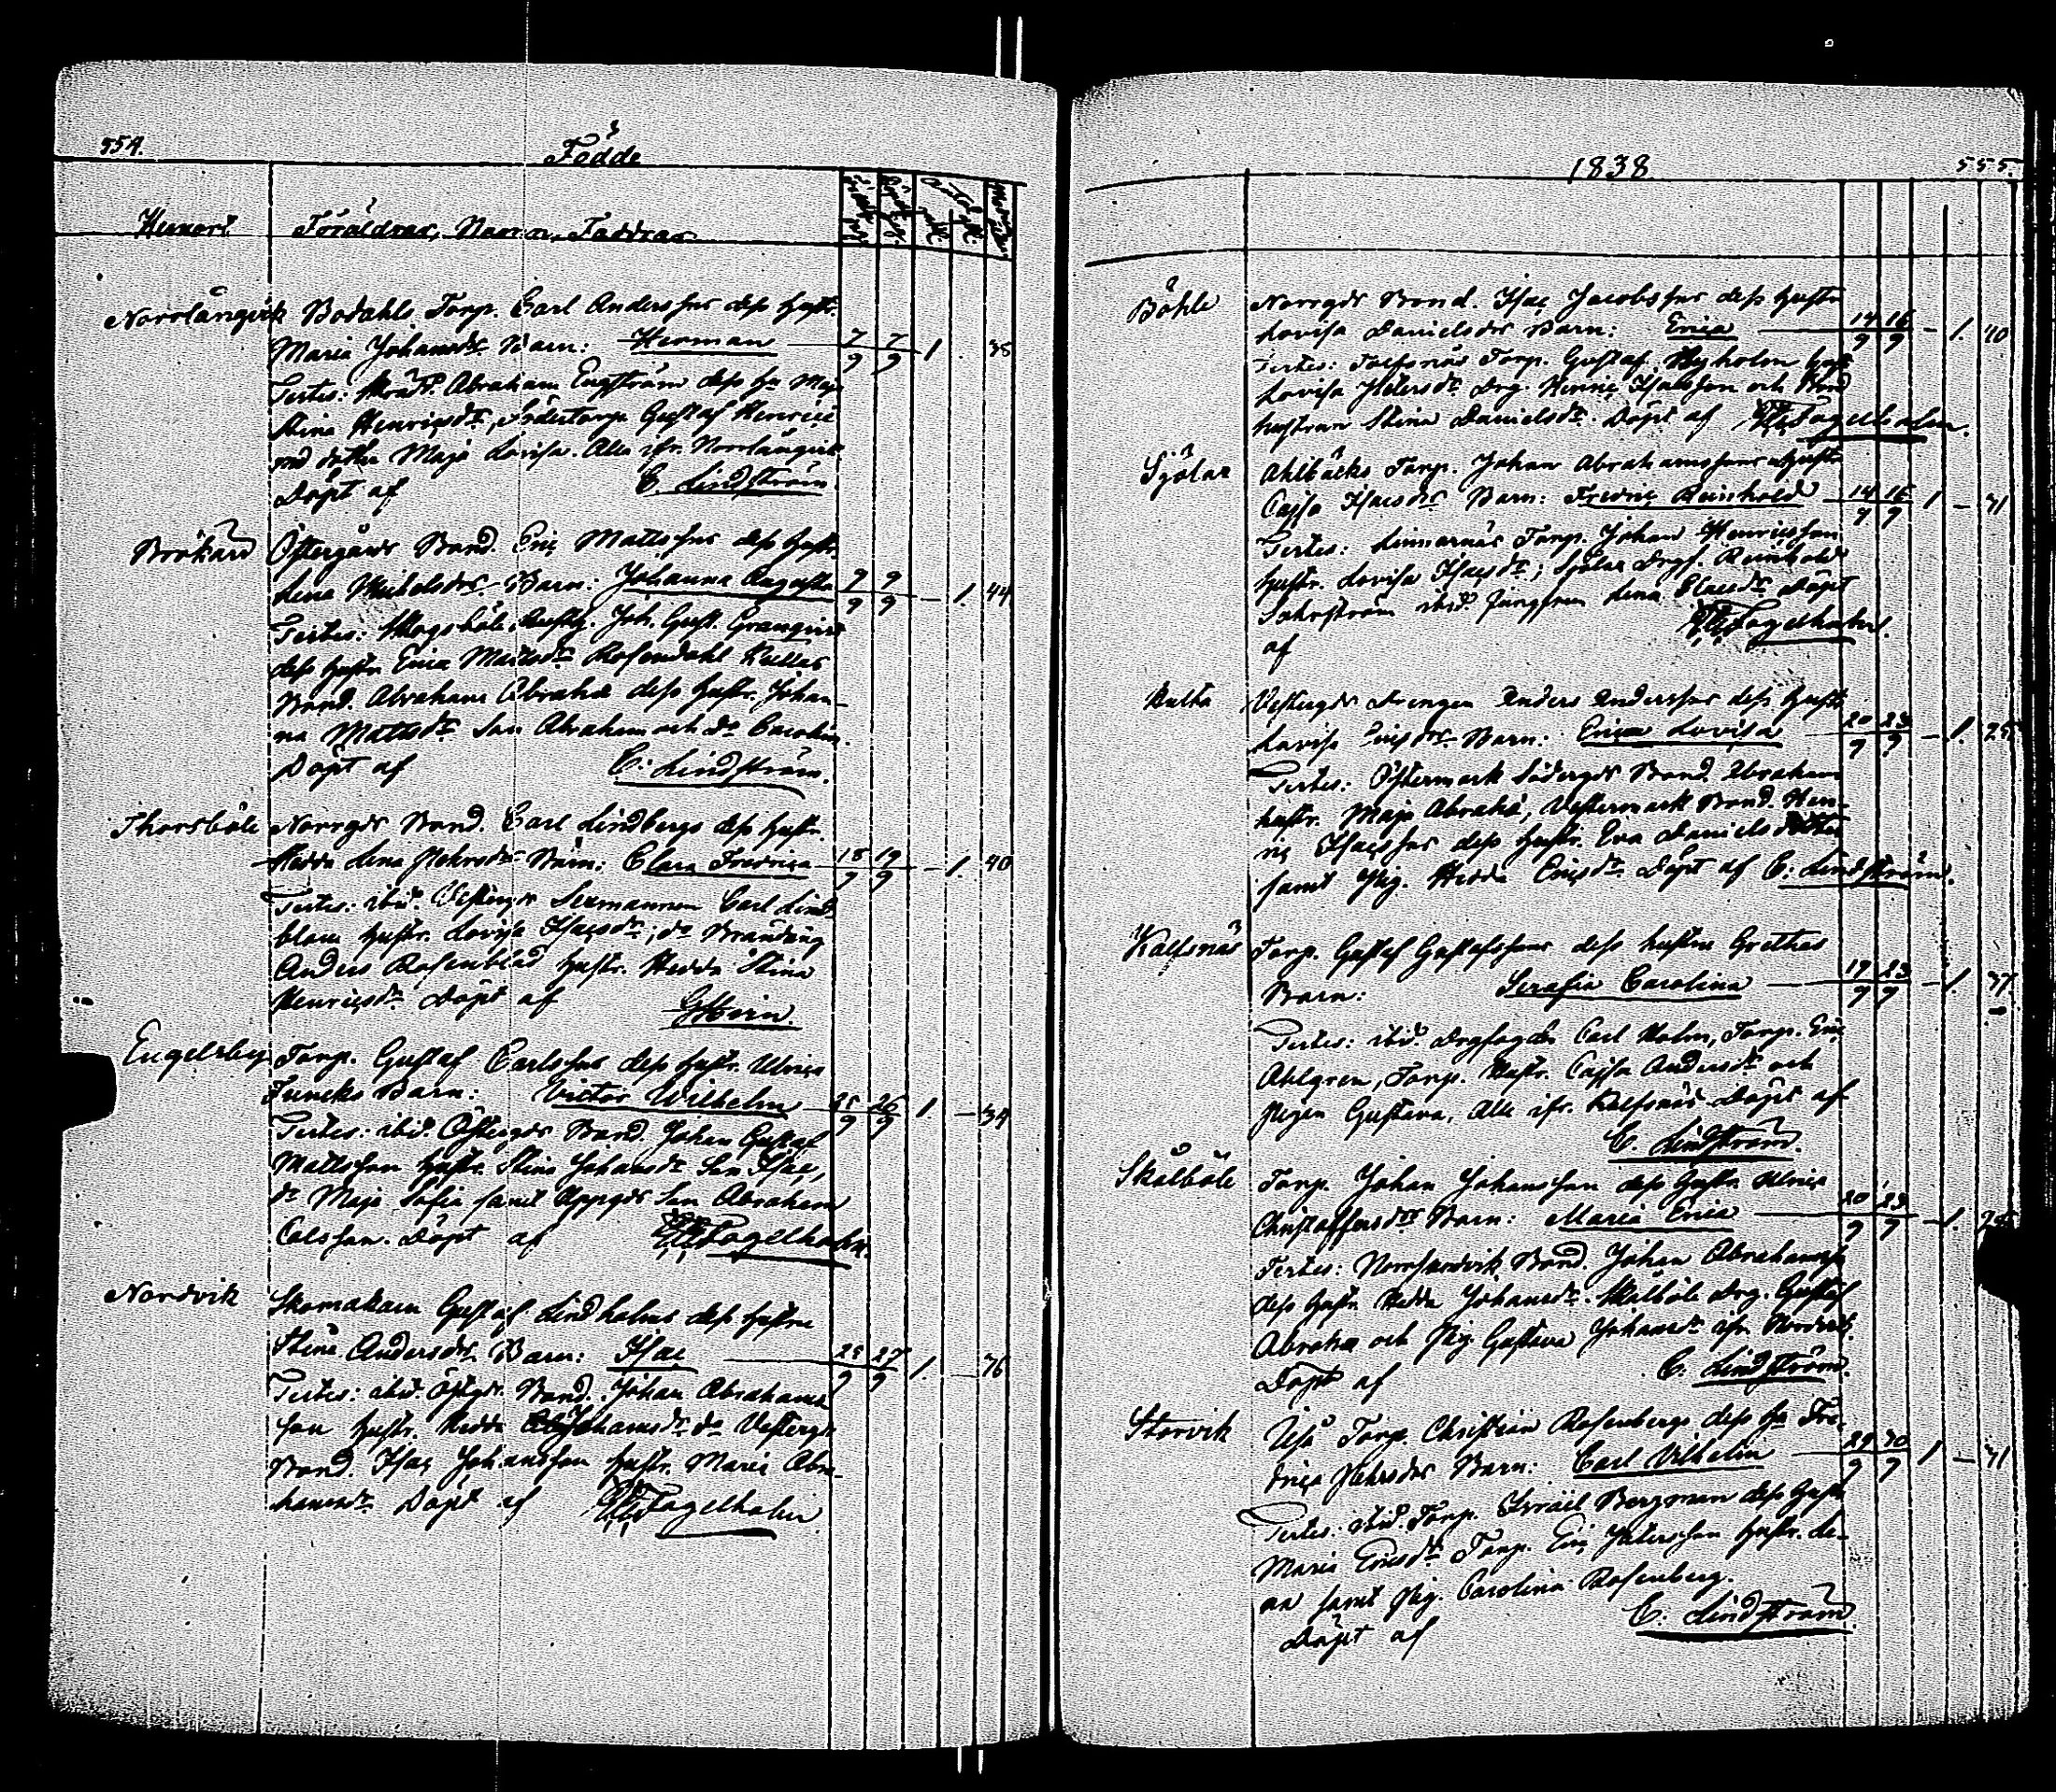 554.
Födde
Hemort
Föräldrar, Namn, Faddrar
Norrlångvik
Bodahls Torp. Carl Anderssons dess Hustr.
Maria Johansdr Barn: Herman 7/9 7/9 1. 38
Testes: Abraham Engström dess Hu Maja
Stina Henricsdr, Gustaf Henrics
Maja Lovisa. Alla ifr. Norrlångvik
Döpt af C. Lindström
Brokärr
Östergårds Bond. Eric Mattssons dess Hustr.
Lena Michelsdrs Barn: Johanna Augusta 9/9 9/9 – 1. 44
Testes: Skogsböle Joh. Gust. Granqvist
dess Hustr Erica Mattsdr Rosendahl Kullas
Bond. Abraham Abrahs dess Hustr. Johan-
na Mattsdr Son Abraham och dr Carolin.
Döpt af C. Lindström.
Thorsböle
Norrgds Bond. Carl Lindbergs dess Hustr.
Hedda Lena Pehrsdrs Barn: Clara Fredrica 18/9 19/9 – 1. 40
Testes: ibid. Vestergds Sexmannen Carl Lind-
blom Hustr. Lovisa Isacsdr; do
Anders Rosenblad Hustr. Hedda Stina
Henricsdr Döpt af
Engelsby
Torp. Gustaf Carlssons dess Hustr. Ulrica
Funcks Barn: Victor Wilhelm 25/9 26/9 1. – 34
Testes: ibid. Östergds Bond. Johan Gustaf
Mattsson Hustr. Stina Johansdr Son Isac,
dr Maja Sofia samt Uppgds Son Abraham
Carlsson. Döpt af Fogelholm.
Nordvik
Skomakarn Gustaf Lindholms dess Hustru
Stina Andersdrs Barn: Isac 25/9 27/9 1. – 76
Testes: ibid. Östgds. Bond. Johan Abrahams
son Hustr. Hedda Johansdr do Vestergds
Bond. Isac Johansson Hustr. Maria Abra-
hamsdr Döpt af Fogelholm
1838
555.
Böhle
Norrgds Bond. Isac Jacobssons dess Hustru
Lovisa Danielsdrs Barn: Erica 14/9 16/9 – 1. 40
Testes: Torp. Gustaf Nyholm Hust
Lovisa Petersdr. Drg. Henric Isacsson och Bond
hustrun Stina Danielsdr. Döpt af Fogelholm.
Sjölax
Ahlbäcks Torp. Johan Abrahamssons Hustr
Cajsa Isacsdrs Barn: Fredric Reinhold 14/9 16/9 1 – 41
Testes: Linnarnäs Torp. Johan Henricsson
Hustr. Lovisa Isacsdr; Sjölax Drgf. Reinhold
Sahrström ibid. Jungfrun Lena Claesdr Döpt
af Fogelholm.
Kulla
Vestergds Drengen Anders Anderssons dess Hustr
Lovisa Ericsdrs Barn: Erica Lovisa 20/9 23/9 – 1. 25
Testes: Östermark Södergds Bond. Abraham
Hustr. Maja Abrahs, Vestermark Bond. Hen-
ric Isacssons dess Hustr. Eva Daniels dotter
samt Pig. Hedda Ericsdr. Döpt af C. Lindström.
Kallsnäs
Torp. Gustaf Gustafssons dess hustru Grethas
Barn: Serafia Carolina 19/9 23/9 – 1. 37
Testes: ibid. Drgfogden Carl Holm, Torp. Eric
Ahlgren, Torp. Hustr. Cajsa Andersdr och
Pigan Gustava, Alla ifr. Kallsnäs Döpt af
C. Lindström.
Skålböle
Torp. Johan Johansson dess Hustr Ulrica
Christoffersdrs Barn: Maria Erica 20/9 23/9 – 1.
Testes: Norrsundvik Bond. Johan Abrahamss
dess Hustr Hedda Johansdr. Skålböle Drg. Gustaf
Abrahs och Pig Gustava Johansdr ifr. Nordvik.
Döpt af C. Lindström.
Storvik
Torp. Christian Rosenbergs dess Hu Fre-
drica Pehrsdrs Barn: Carl Vilhelm 29/9 30/9 1 – 41
Testes: ibid. Torp. Israel Bergman dess Hustr
Maria Ericsdr Torp. Eric Petersson Hustr. Le-
na samt Pig. Carolina Rosenberg.
Döpt af C. Lindström